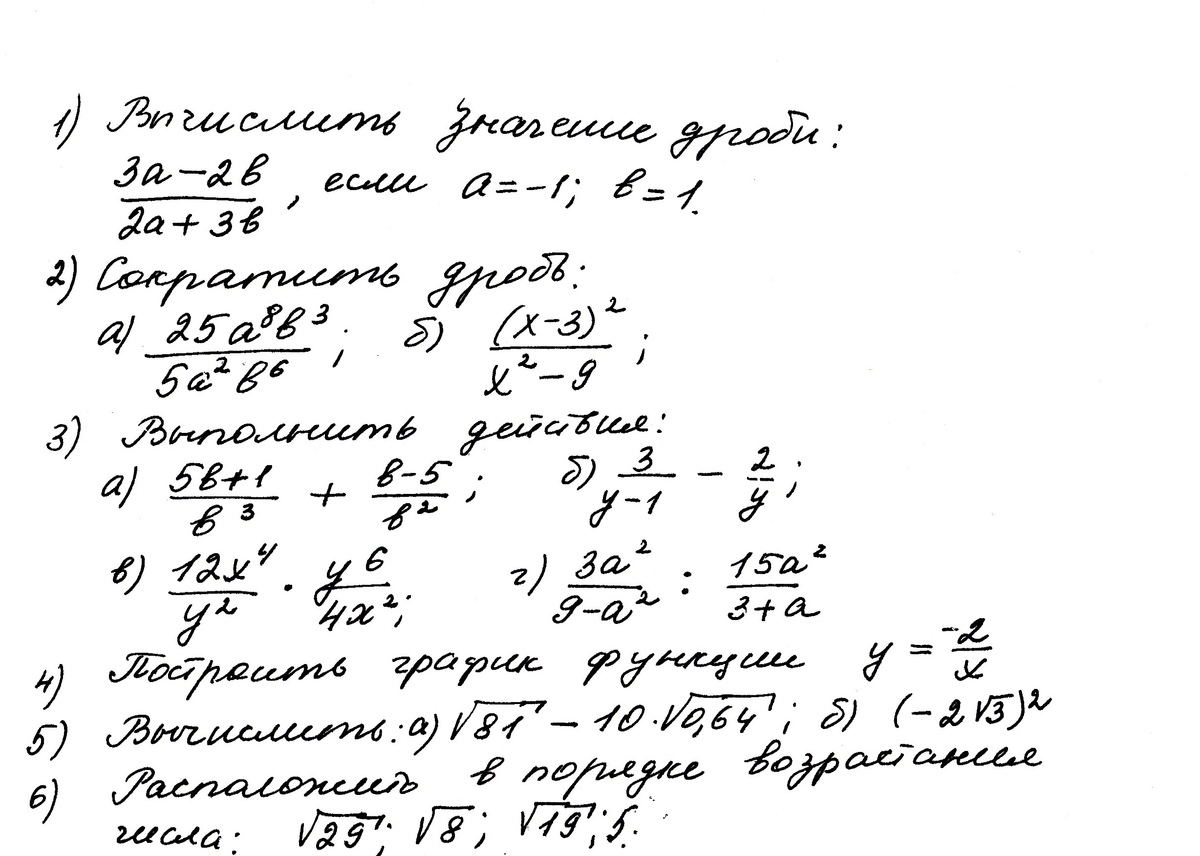 1) Вычислить значение дроби:
(3a-2b)/(2a+3b), если a=-1; b=1.
2) Сократить дробь:
а) 25a⁸b³/5a²b⁶; б) (x-3)²/(x²-9);
3) Выполнить действия:
а) (5b+1)/b³ + (b-5)/b²; б) 3/(y-1) - 2/y;
в) 12x⁴/y² · y⁶/4x²; г) 3a²/(9-a²) : 15a²/(3+a)
4) Построить график функции y = -2/x
5) Вычислить: а) √81 - 10·√0,64; б) (-2√3)²
6) Расположить в порядке возрастания
числа: √29; √8; √19; 5.